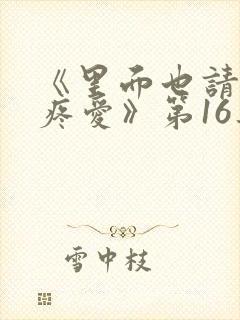 《里面也請
疼愛》第16
雪中枝